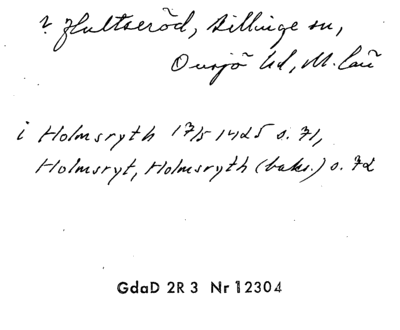 ? Hultseröd, Killinge sn,
Onsjö hd, M. län
i Holmsryth 17/5 1425 s. 71,
Holmsryt, Holmsryth (baks.) s. 72
GdaD 2R3 Nr 12304